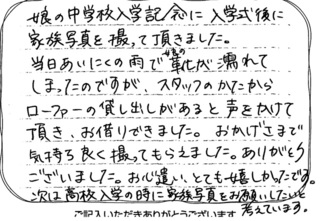 娘の中学校入学記念に入学式後に
家族写真を撮って頂きました。
当日あいにくの雨で娘の靴が濡れて
しまったのですが、スタッフのかたから
ローファーの貸し出しがあると声をかけて
頂き、お借りできました。おかげさまで
気持ち良く撮ってもらえました。ありがとう
ございました。お心遣い、とても嬉しかったです。
次は高校入学の時に家族写真をお願いしたいと
考えています。
ご記入いただきありがとうございます